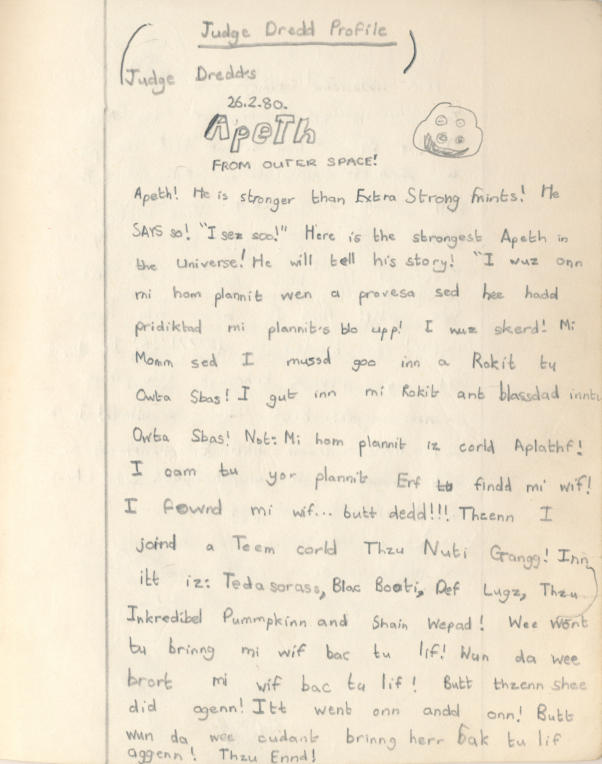 Judge Dredd Profile
Judge Dredds
26.2.80.
ApeTh
FROM OUTER SPACE!
Apeth! He is stronger than Extra Strong mints! He
SAYS so! "I sez soo!" Here is the strongest Apeth in
the Universe! He will tell his story! "I wuz onn
mi hom plannit wen a provesa sed hee hadd
pridiktad mi plannit's blo upp! I wuz skerd! Mi
Momm sed I mussd goo inn a Rokit tu
Owta Sbas! I gut inn mi Rokit ant blassdad inntu
Owta Sbas! Not: Mi hom plannit iz corld Aplathf!
I cam tu yor plannit Erf to findd mi wif!
I fownd mi wif... butt dedd!!! Thzenn I
joind a Teem corld Thzu Nuti Gangg! Inn
itt iz: Tedasorass, Blac Booti, Def Lugz, Thzu
Inkredibel Pummpkinn and Shain Wepad! Wee wont
tu brinng mi wif bac tu lif! Wun da wee
brort mi wif bac tu lif! Butt thzenn shee
did agenn! Itt went onn andd onn! Butt
wun da wee cudant brinng herr bak tu lif
aggenn! Thzu Ennd!